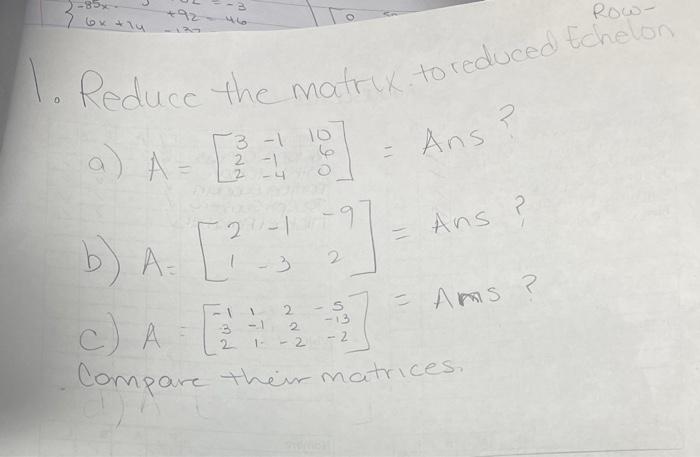 -85x
+92 = 46
= -3
6x + 14
Row-
1. Reduce the matrix to reduced Echelon
a) A = [3 -1 10
2 -1 6
2 -4 0] = Ans ?
b) A = [2 -1 -9
1 -3 2] = Ans ?
c) A = [-1 1 2 -5
3 -1 2 -13
2 1 -2 -2] = Ams ?
Compare their matrices.